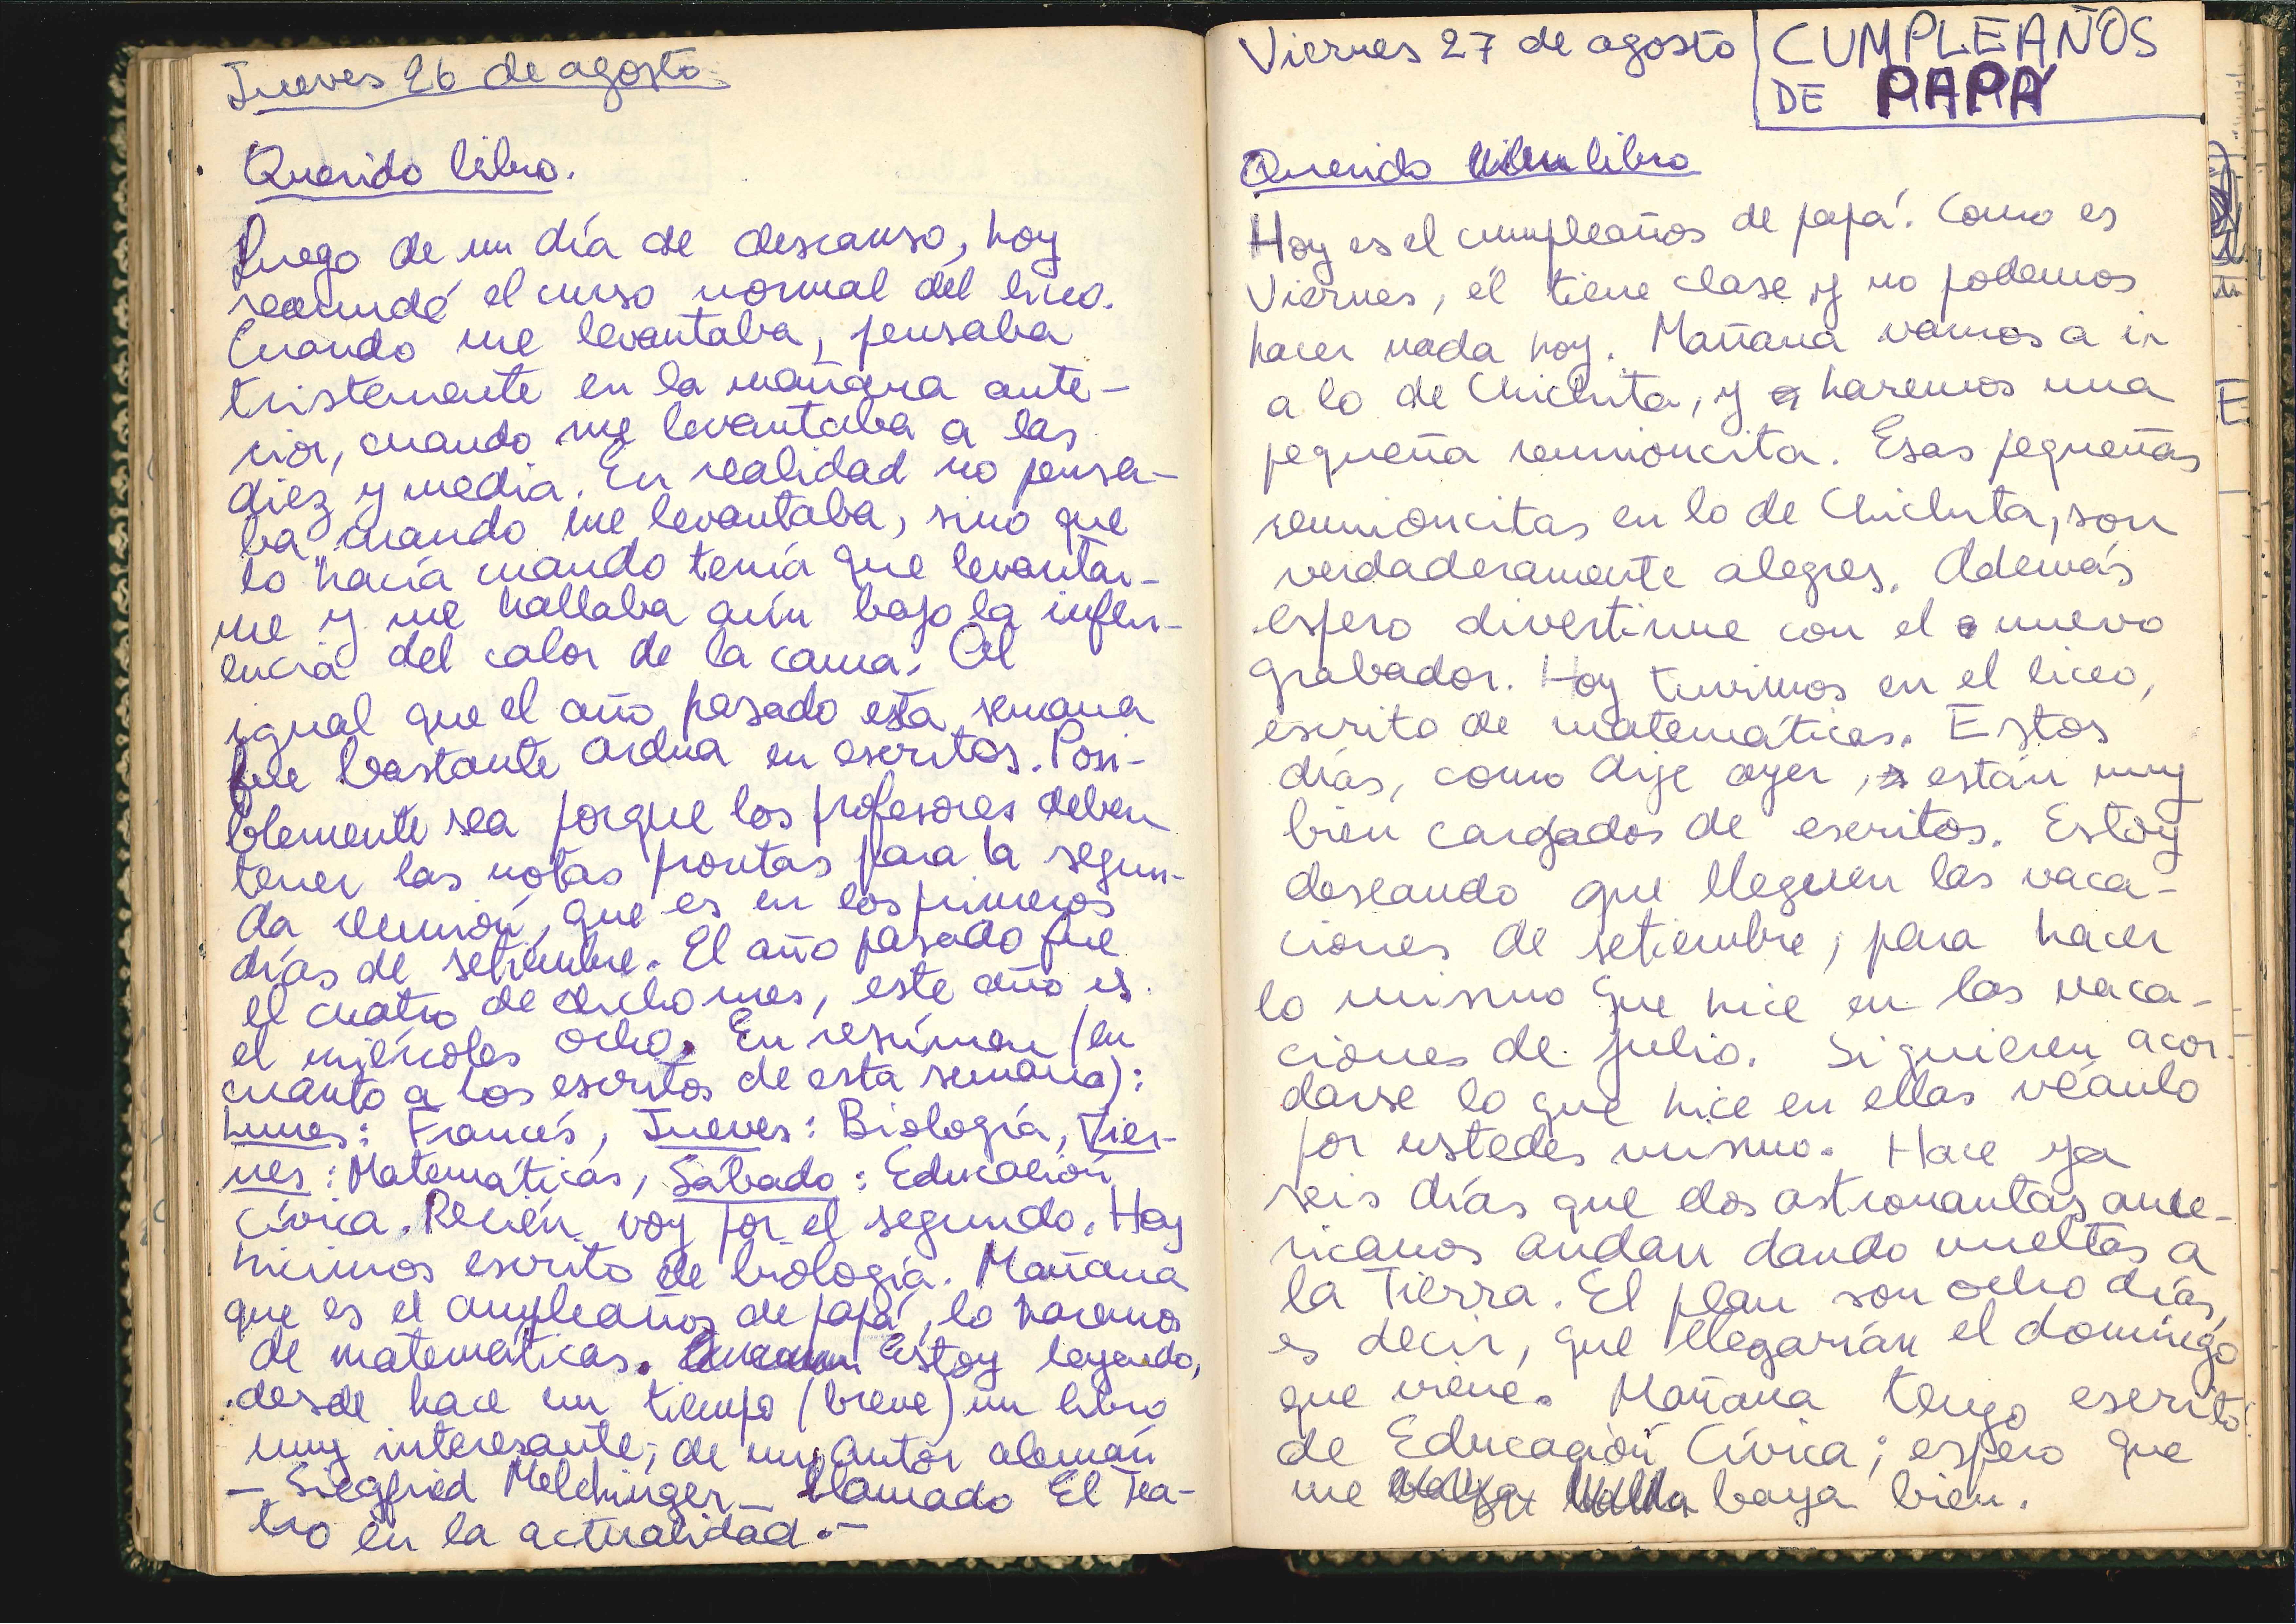 Jueves 26 de agosto
Querido libro.
Luego de un día de descanso, hoy
reanudé el curso normal del liceo.
Cuando me levantaba, pensaba
tristemente en la mañana ante-
rior, cuando me levantaba a las
diez y media. En realidad no pensa-
ba cuando me levantaba, sino que
lo hacía cuando tenía que levantar-
me y me hallaba aún bajo la influ-
encia del calor de la cama. Al
igual que el año pasado esta semana
fue bastante ardua en escritos. Posi-
blemente sea porque los profesores deben
tener las notas prontas para la segun-
da reunión, que es en los primeros
días de setiembre. El año pasado fue
el cuatro de dicho mes, este año es
el miércoles ocho. En resúmen (en
cuanto a los escritos de esta semana):
Lunes: Francés, Jueves: Biología, Vier-
nes: Matemáticas, Sábado: Educación
Cívica. Recién voy por el segundo. Hoy
hicimos escrito de biología. Mañana
que es el cumpleaños de papá, lo haremos
de matemáticas. Estoy leyendo,
desde hace un tiempo (breve) un libro
muy interesante, de un autor alemán
- Siegfried Melchinger - llamado El Tea-
tro en la actualidad.-
Viernes 27 de agosto
CUMPLEAÑOS
DE PAPÁ
Querido libro
Hoy es el cumpleaños de papá. Como es
Viernes, él tiene clase y no podemos
hacer nada hoy. Mañana vamos a ir
a lo de Chichita, y haremos una
pequeña reunioncita. Esas pequeñas
reunioncitas en lo de Chichita, son
verdaderamente alegres. Además
espero divertirme con el nuevo
grabador. Hoy tuvimos en el liceo,
escrito de matemáticas. Estos
días, como dije ayer, están muy
bien cargados de escritos. Estoy
deseando que lleguen las vaca-
ciones de setiembre, para hacer
lo mismo que hice en las vaca-
ciones de julio. Si quieren acor-
darse lo que hice en ellas véanlo
por ustedes mismo. Hace ya
seis días que dos astronautas ame-
ricanos andan dando vueltas a
la Tierra. El plan son ocho días,
es decir, que llegarían el domingo
que viene. Mañana tengo escrito
de Educación Cívica; espero que
me baya bien.